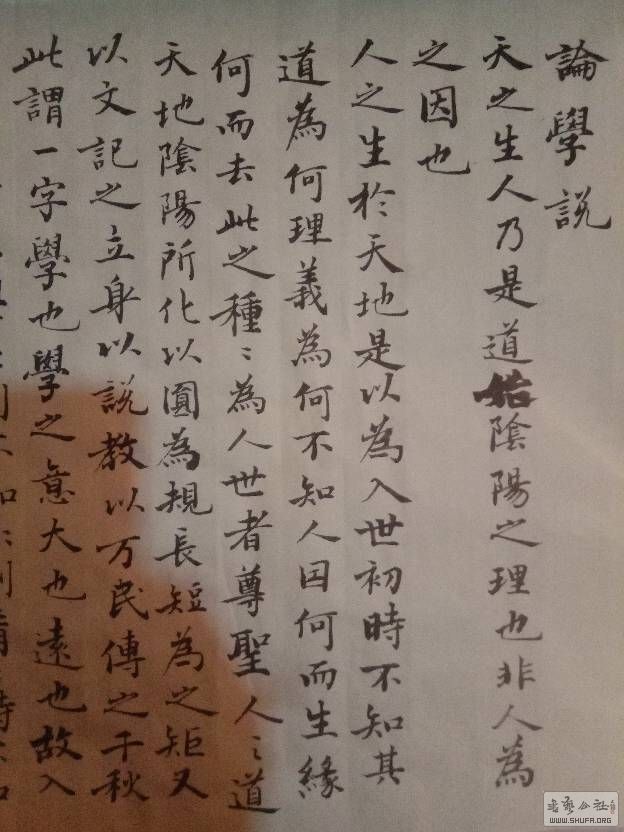 論學說
天之生人乃是道始陰陽之理也非人為
之因也
人之生於天地是以為入世初時不知其
道為何理義為何不知人因何而生緣
何而去此之種〻為人世者尊聖人〻道
天地陰陽所化以圓為規長短為之矩又
以文記之立身以說教以万民傳之千秋
此謂一字學也學之意大也遠也故入
WWW.SHUFA.ORG